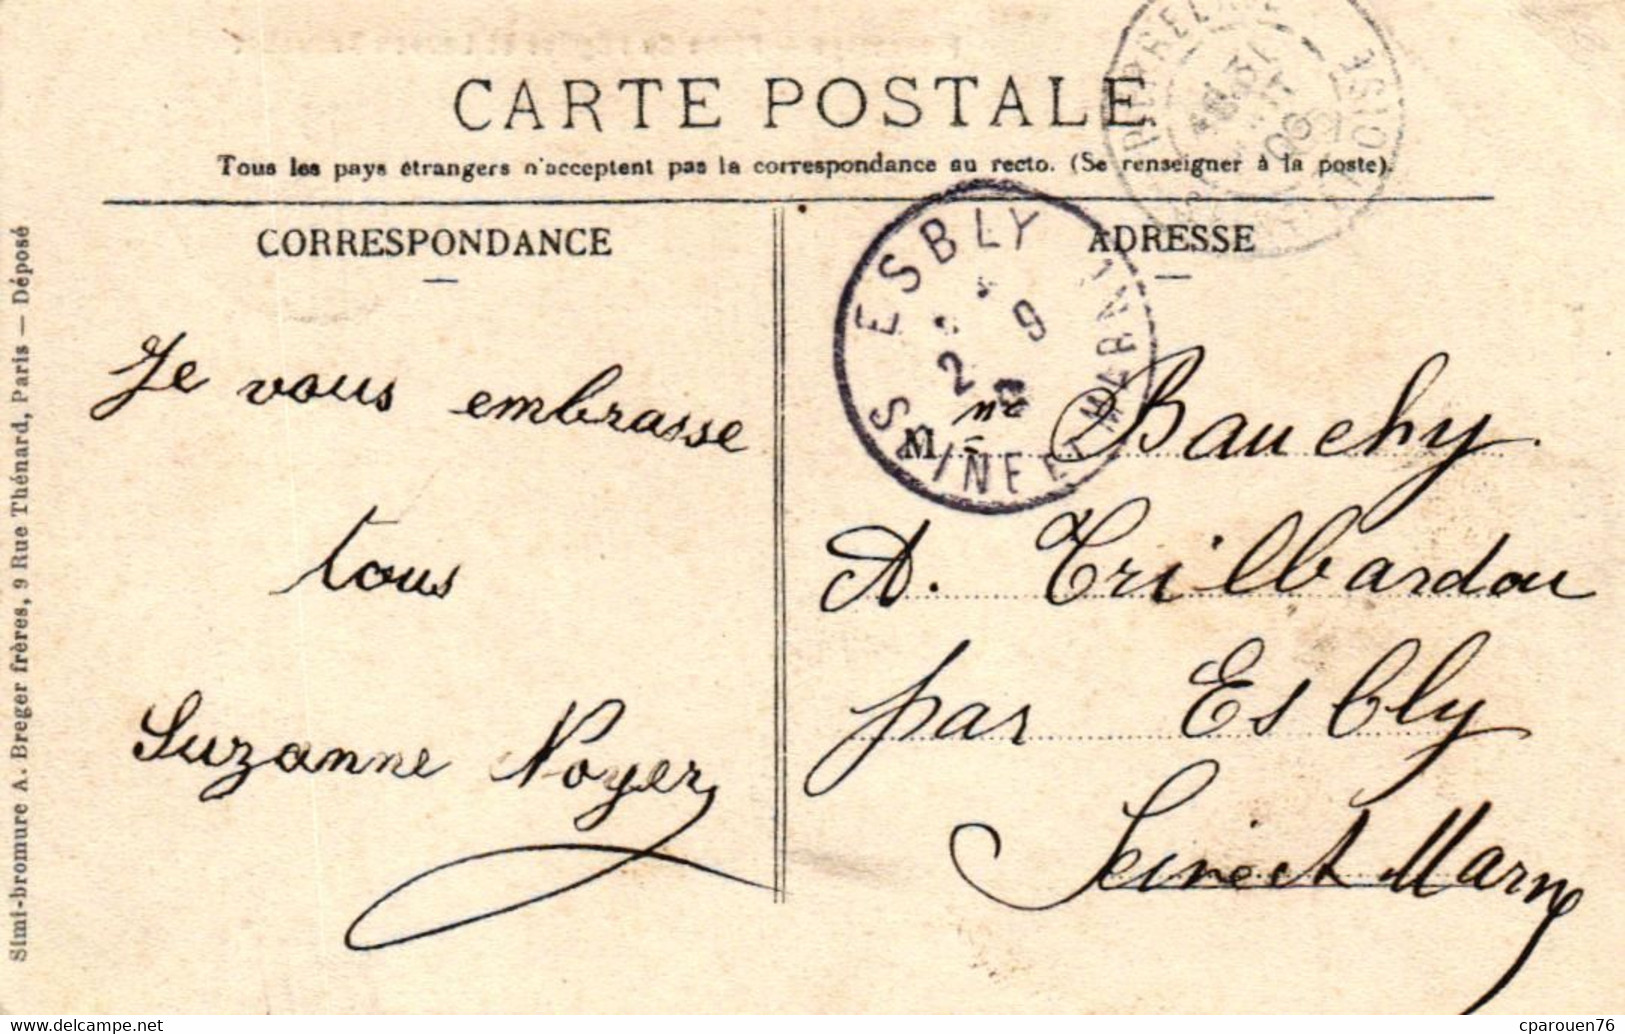 CARTE POSTALE
Tous les pays étrangers n'acceptent pas la correspondance au recto. (Se renseigner à la poste).
CORRESPONDANCE
Je vous embrasse
tous
Suzanne Noyer
ADRESSE
Mme Bauchy.
A. Trilbardou
par Esbly
Seine et Marne
ESBLY
SEINE ET MARNE
2 9
31
06
OISE
Simi-bromure A. Breger frères, 9 Rue Thénard, Paris — Déposé
cparouen76